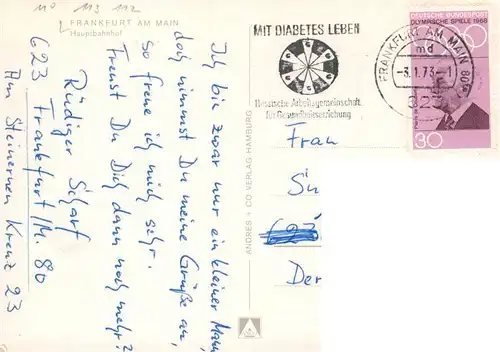 110 113 112
FRANKFURT AM MAIN
Hauptbahnhof
Ich bin zwar nur ein kleiner Mann,
doch nimmst Du meine Grüße an,
so freue ich mich sehr.
Freust Du Dich dann noch mehr?
Rüdiger Scharf
623 Frankfurt/M. 80
Am Steinernen Kreuz 23
ANDRES + CO VERLAG HAMBURG
MIT DIABETES LEBEN
Hessische Arbeitsgemeinschaft
für Gesundheitserziehung
FRANKFURT AM MAIN 80
md
-3.1.73.-1
623
DEUTSCHE BUNDESPOST
OLYMPISCHE SPIELE 1968
30
Frau
Su
623
Der